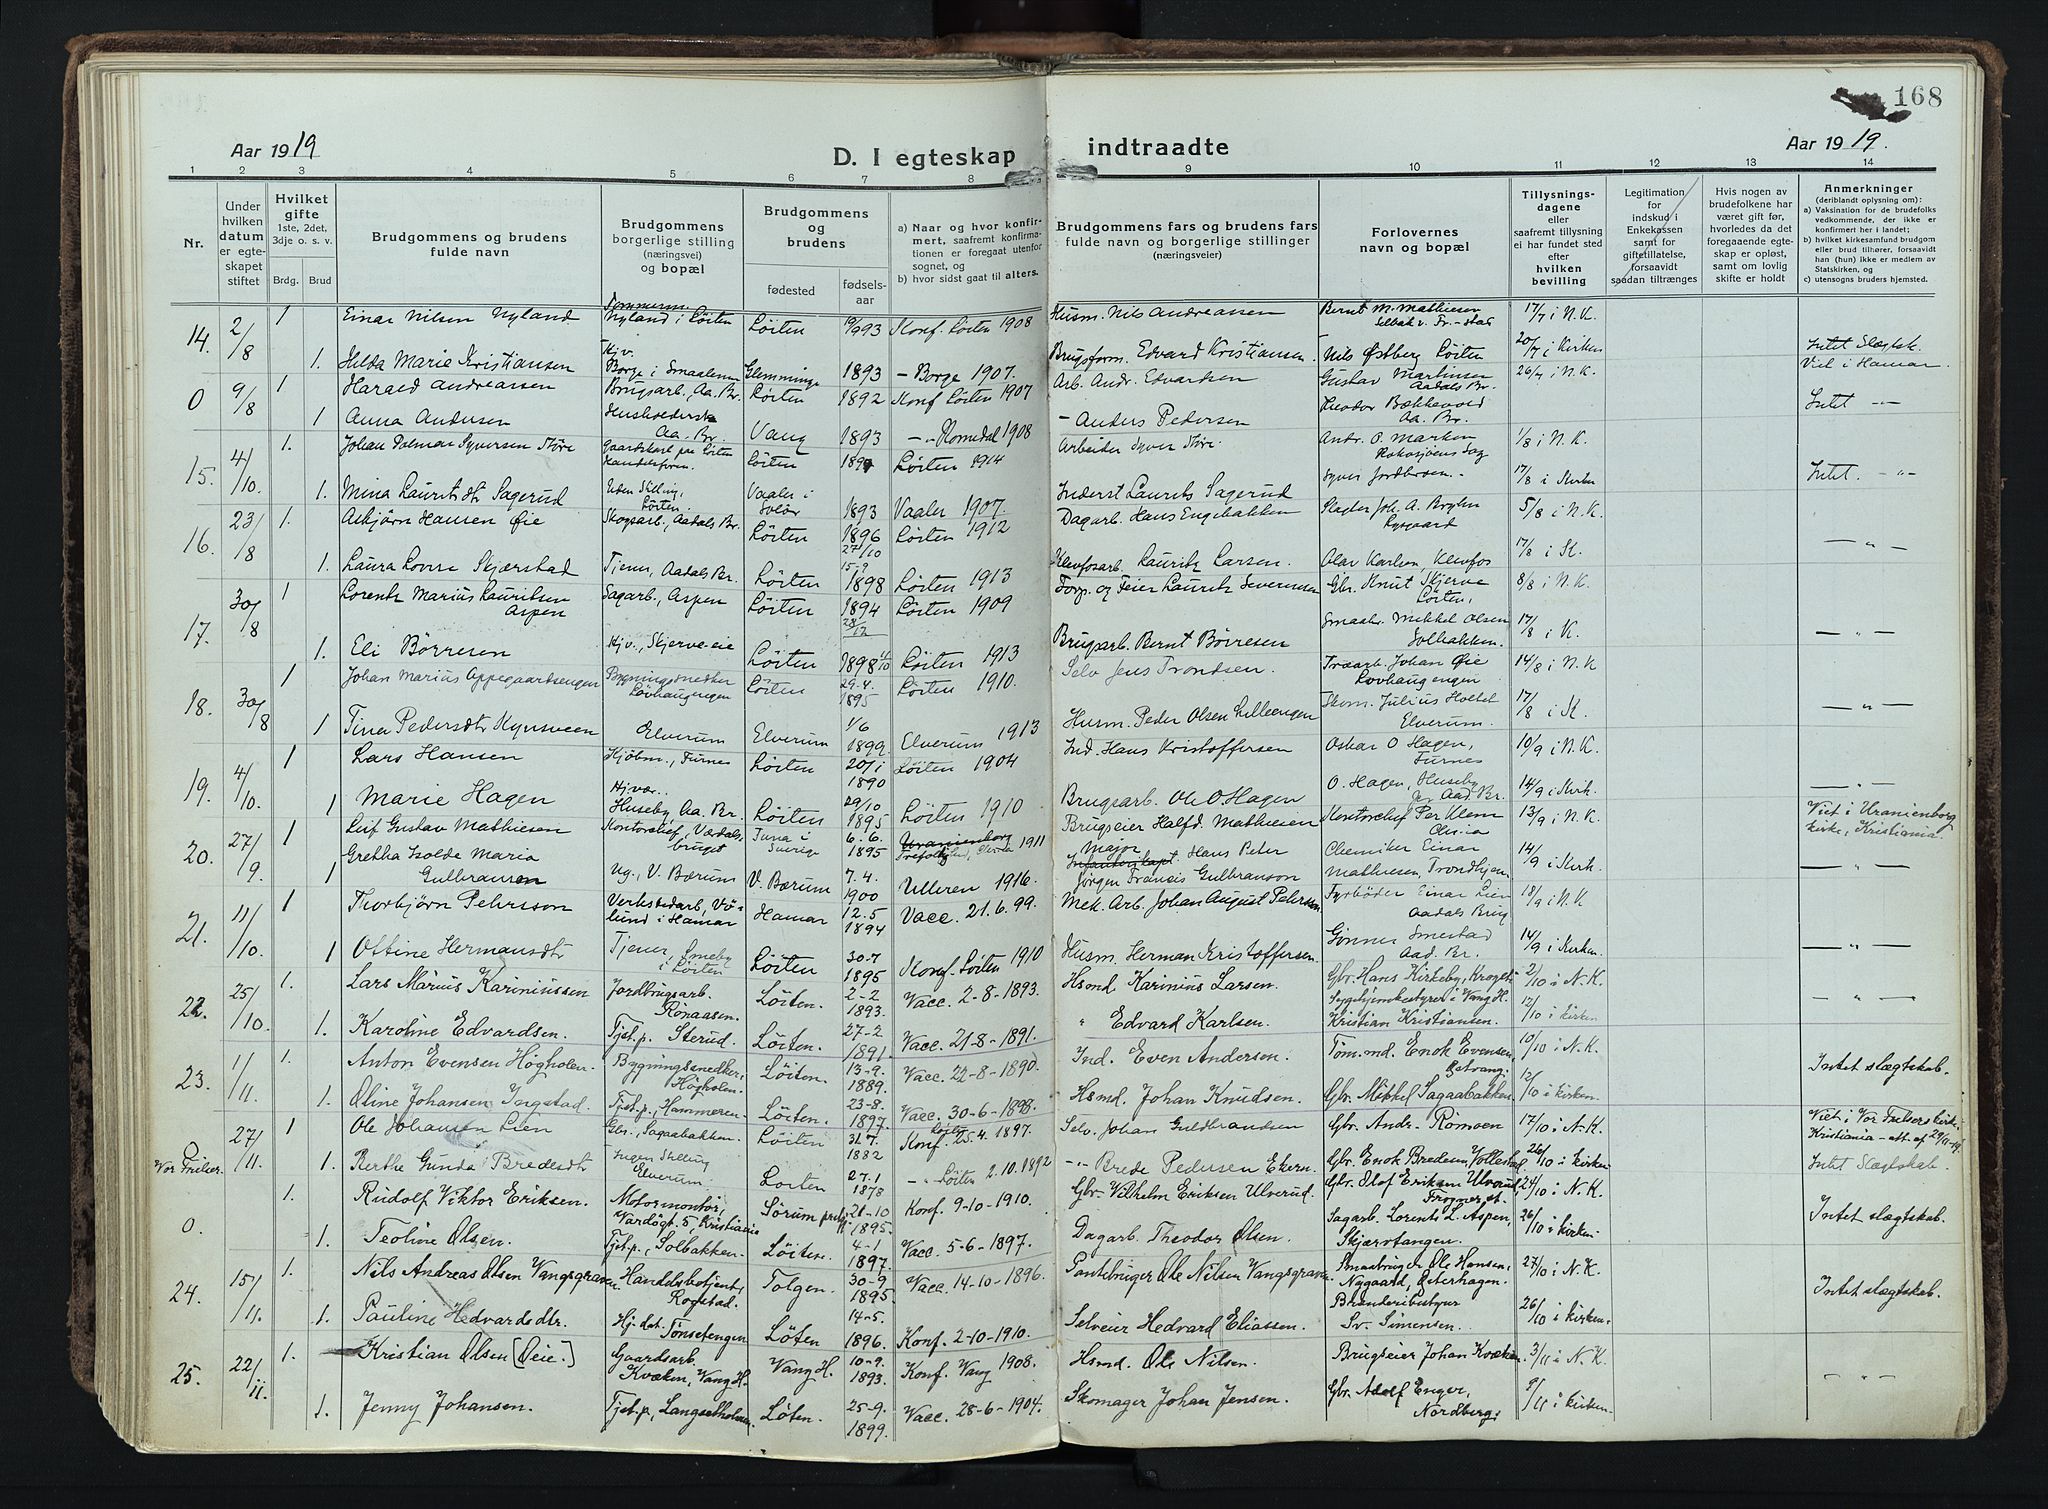 168
Aar 1919
D. I egteskap indtraadte
Aar 1919.
1 2 3 4 5 6 7 8 9 10 11 12 13 14
Nr.
Under hvilken datum er egteskapet stiftet
Hvilket gifte
1ste, 2det, 3dje o. s. v.
Brdg. Brud
Brudgommens og brudens fulde navn
Brudgommens borgerlige stilling (næringsvei) og bopæl
Brudgommens og brudens
fødested
fødselsaar
a) Naar og hvor konfirmert, saafremt konfirmationen er foregaat utenfor sognet, og
b) hvor sidst gaat til alters.
Brudgommens fars og brudens fars fulde navn og borgerlige stillinger (næringsveier)
Forlovernes navn og bopæl
Tillysningsdagene eller saafremt tillysning ei har fundet sted efter hvilken bevilling
Legitimation for indskud i Enkekassen samt for giftetillatelse, forsaavidt saadan tiltrænges
Hvis nogen av brudefolkene har været gift før, hvorledes da det foregaaende egteskap er opløst, samt om lovlig skifte er holdt
Anmerkninger
(deriblandt oplysning om):
a) Vaksination for de brudefolks vedkommende, der ikke er konfirmert her i landet;
b) hvilket kirkesamfund brudgom eller brud tilhører, forsaavidt han (hun) ikke er medlem av Statskirken, og
c) utensogns bruders hjemsted.
14. 2/8 1 Einar Nilsen Nyland Nyland i Løiten Løiten 1893 Konf. Løiten 1908 Husm. Nils Andreassen Bernt M. Mathiesen 17/7 i N.K.
1. Hilda Marie Kristiansen Hjv. Borge i Smaalenene Glemminge 1893 - Borge 1907. Brugsform. Edvard Kristiansen Nils Østberg Løiten 20/7 i Kirken Intet Slægtsk.
0 9/8 1 Harald Andreassen Brugsarb., Aa. Br. Løiten 1892 Konf Løiten 1907 Arb. Andr. Edvardsen Gustav Martinsen Aadals Br. 26/7 i N.K. Viel i Hamar.
1 Anna Andersen Aa. Br. Vang 1893 - " - Romedal 1908 - Anders Pedersen Theodor Bækkevold Aa. Br. Intet - " -
15. 4/10. 1. Johan Dolmar Syversen Støre Løiten Løiten 1914 Arbeider Syver Støre. Andr. O. Marken 1/8 i N.K.
1. Mina Laurits dtr Sagerud Uden Stilling, Løiten. Vaaler i Solør 1893 Vaaler 1907 Inderst Laurits Sagerud Syver Jordbersen. 17/8 i Kirken Intet. - " -
16. 23/8 1. Asbjørn Hansen Øie Skogsarb., Aadals Br. Løiten 1896 27/10 Løiten 1912 Dagarb. Hans Engebakken Slagter Joh. A. Bryhn Lysgaard 5/8 i N.K.
1. Laura Lovise Skjærstad Tjener, Aadals Br. Løiten 1898 Løiten 1913 Klevfosarb. Lauritz Larsen. Olav Karlsen, Klevfos 17/8 i K. - " -
17. 30/8 1 Lorentz Marius Lauritsen Aspen Sagarb., Aspen Løiten 1894 28/12 Løiten 1909 Forp. og Feier Lauritz Severinsen Gbr. Knut Skjerve Løiten, 8/8 i N.K.
1. Eli Børresen Hjv., Skjerve-eie Løiten 1898 11/10 Løiten 1913 Brugsarb. Bernt Børresen Smaabr. Mikkel Olsen Solbakken. 17/8 i K. - " -
18. 30/8 1 Johan Marius Oppegaardsengen Bygningssnedker Løvhaugengen Løiten 29-4. 1895 Løiten 1910. Selv Jens Trondsen. Traarb. Johan Øie Lovhaugengen 14/8 i N.K
1 Tina Pedersdtr Kynsveen Elverum Elverum 1/6 1899. Elverum 1913 Husm. Peder Olsen Lilleengen Skom. Julius Holtet Elverum. 17/8 i K. - " -
19. 4/10. 1 Lars Hansen Kjøbm., Furnes Løiten 20/1 1890 Løiten 1904 Ind. Hans Kristoffersen Oskar O Hagen, Furnes 10/9 i N.K.
1 Marie Hagen Huseby Aa. Br. Løiten 29/10 1895 Løiten 1910 Brugsarb. Ole O. Hagen O. Hagen, Huseby Aad. Br. 14/9 i Kirk. - " -
20. 27/9. 1 Leif Gustav Mathiesen Kontorchef, Vædalsbruget Tuna i Sverige 6-6. 1895 Uranienborg 1911 Brugseier Halfd. Mathiesen Kontorchef Per Klem 13/9 i N.K. Viet i Uranienborg kirke, Kristiania.
1 Gretha Isolde Maria Gulbranson Ug., V. Bærum V. Bærum 7.4. 1900 Ulleren 1916. Major Hans Peter Jørgen Francis Gulbranson Chemiker Einar Mathiesen, Trondhjem 14/9 i Kirk - " -
21. 11/10 1 Thorbjørn Pehrsson Verkstedarb., Vølund i Hamar Hamar 12.5 1894 Vacc. 21.6.99. Mek. Arb. Johan August Pehrsson Fyrbøder Einar Lien Aadals Brug 18/9 i N.K
1 Ottine Hermansdtr Tjener, Smeby i Løiten Løiten 30-7 1895 Konf. Løiten 1910 Husm. Herman Kristoffersen. Gunner Smestad Aad. Br. 14/9 i Kirken. - " -
22. 25/10. 1. Lars Marius Kariniussen Jordbrugsarb. Ronaasen. Løiten. 2-2 1893. Vacc. 2-8-1893. Hsmd. Karinius Larsen. Gbr. Hans Kirkeby, 2/10 i N.K.
1. Karoline Edvardsen. Tjst.p. Sterud. Løiten. 27-2 1891. Vacc. 21-8-1891. " Edvard Karlsen. Sygehjemsbestyrer i Vang H. Kristian Kristiansen. 12/10 i kirken - " -
23. 1/11. 1. Anton Evensen Høgholen. Bygningssnedker, Høgholen. Løiten. 13-9. 1889. Vacc. 22-8-1890. Ind. Even Andersen. Tøm.md. Enok Evensen, 10/10 i N.K.
1. Oline Johansen Ingstad. Tjst.p., Hammeren. Løiten. 23-8. 1897. Vacc. 30-6-1898. Hsmd. Johan Knudsen. Gbr. Mikkel Sagaabakken. 12/10 i kirken. Intet slægtskab.
0 Vor Frelser. 27/11. 1 Ole Johansen Lien Gbr., Sagaabakken. Løiten 31.7. 1882 Konf. Løiten 25.4. 1897. Selv. Johan Guldbrandsen Gbr. Andr. Rømoen 17/10 i N.K. Viet i Vor Frelsers kirke Kristiania - att. af 29/11-19.
1. Berthe Gunda Bredesdtr Ingen Stilling Elverum. Løiten 27.1 1878 - " Løiten 2.10.1892 - " - Brede Pedersen Ekern. Gbr. Enok Bredesen, 26/10 i kirken Intet Slægtskab.
0. 1. Rudolf Viktor Eriksen. Motormontør, Vardøgt. 5, Kristiania Sørum 21-10 1895. Konf. 9-10-1910. Gbr. Wilhelm Eriksen Ulverud. Gbr. Olof Eriksen Ulverud, 24/10 i N.K.
1. Teoline Olsen. Tjst.p., Solbakken. Løiten. 4-1 1897. Vacc. 5-6-1897. Dagarb. Theodor Olsen. Sagarb. Lorents L. Aspen, Skjærvtangen. 26/10 i kirken. Intet slægtskab.
24. 15/11. 1. Nils Andreas Olsen Vangsgraven Handelsbetjent, Rogstad. Tolgen. 30-9 1895. Vacc. 14-10-1896. Pantebruger Ole Nilsen Vangsgraven. Smaabruger Ole Hansen, Nygaard, Østerhagen. 27/10 i N.K.
1. Pauline Hedvardsdtr. Hj. dat. Tønsetengen Løten 14-5. 1896. Konf. 2-10-1910. Selveier Hedvard Eliassen. Brænderibestyrer Sv. Simensen. 26/10 i kirken. Intet slægtskab.
25. 22/11. 1. Kristian Olsen [Øeie.] Gaardsarb. Kvæken, Vang H. Vang H. 10-9. 1893. Konf. Vang 1908. Hsmd. Ole Nilsen. Brugseier Johan Kvæken. 3/11 i N.K.
1. Jenny Johansen. Tjst.p., Langsetholmen. Løten. 25-9. 1899. Vacc. 28-6-1904. Skomager Johan Jensen. Gbr. Adolf Enger, Nordberg. 9/11 i kirken. - " -